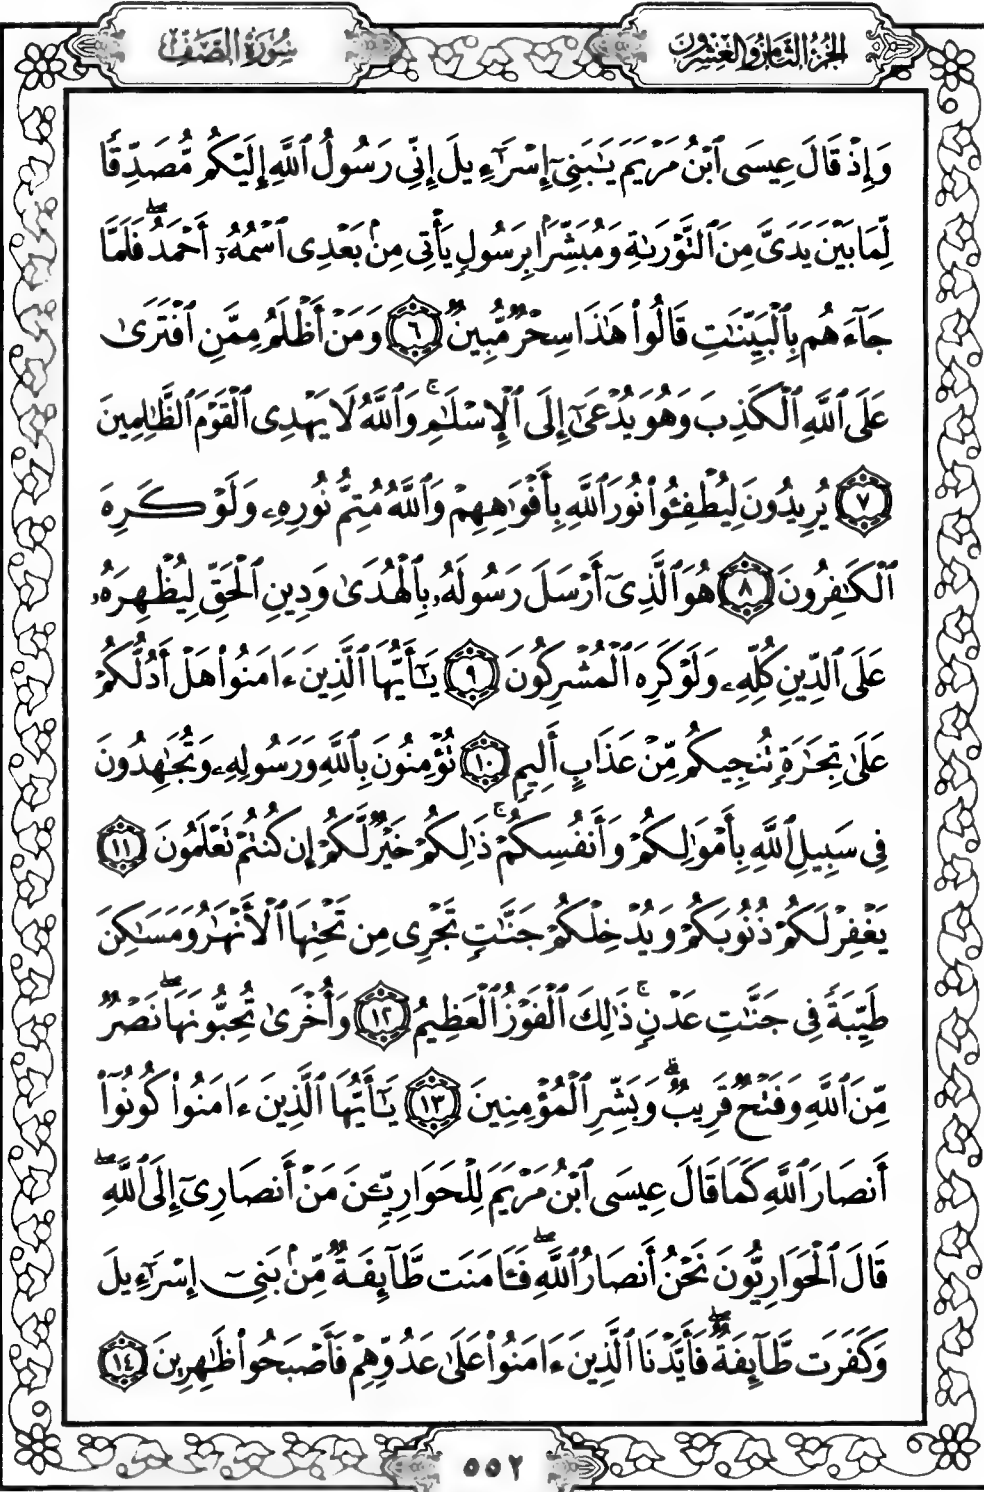 الجزء الثامن والعشرون
سورة الصف
وَإِذْ قَالَ عِيسَى ٱبْنُ مَرْيَمَ يَٰبَنِىٓ إِسْرَٰٓءِيلَ إِنِّى رَسُولُ ٱللَّهِ إِلَيْكُم مُّصَدِّقًا
لِّمَا بَيْنَ يَدَىَّ مِنَ ٱلتَّوْرَىٰةِ وَمُبَشِّرًۢا بِرَسُولٍ يَأْتِى مِنۢ بَعْدِى ٱسْمُهُۥٓ أَحْمَدُ ۖ فَلَمَّا
جَآءَهُم بِٱلْبَيِّنَٰتِ قَالُوا۟ هَٰذَا سِحْرٌ مُّبِينٌ ٦ وَمَنْ أَظْلَمُ مِمَّنِ ٱفْتَرَىٰ
عَلَى ٱللَّهِ ٱلْكَذِبَ وَهُوَ يُدْعَىٰٓ إِلَى ٱلْإِسْلَٰمِ ۚ وَٱللَّهُ لَا يَهْدِى ٱلْقَوْمَ ٱلظَّٰلِمِينَ
٧ يُرِيدُونَ لِيُطْفِـُٔوا۟ نُورَ ٱللَّهِ بِأَفْوَٰهِهِمْ وَٱللَّهُ مُتِمُّ نُورِهِۦ وَلَوْ كَرِهَ
ٱلْكَٰفِرُونَ ٨ هُوَ ٱلَّذِىٓ أَرْسَلَ رَسُولَهُۥ بِٱلْهُدَىٰ وَدِينِ ٱلْحَقِّ لِيُظْهِرَهُۥ
عَلَى ٱلدِّينِ كُلِّهِۦ وَلَوْ كَرِهَ ٱلْمُشْرِكُونَ ٩ يَٰٓأَيُّهَا ٱلَّذِينَ ءَامَنُوا۟ هَلْ أَدُلُّكُمْ
عَلَىٰ تِجَٰرَةٍ تُنجِيكُم مِّنْ عَذَابٍ أَلِيمٍ ١٠ تُؤْمِنُونَ بِٱللَّهِ وَرَسُولِهِۦ وَتُجَٰهِدُونَ
فِى سَبِيلِ ٱللَّهِ بِأَمْوَٰلِكُمْ وَأَنفُسِكُمْ ۚ ذَٰلِكُمْ خَيْرٌ لَّكُمْ إِن كُنتُمْ تَعْلَمُونَ ١١
يَغْفِرْ لَكُمْ ذُنُوبَكُمْ وَيُدْخِلْكُمْ جَنَّٰتٍ تَجْرِى مِن تَحْتِهَا ٱلْأَنْهَٰرُ وَمَسَٰكِنَ
طَيِّبَةً فِى جَنَّٰتِ عَدْنٍ ۚ ذَٰلِكَ ٱلْفَوْزُ ٱلْعَظِيمُ ١٢ وَأُخْرَىٰ تُحِبُّونَهَا ۖ نَصْرٌ
مِّنَ ٱللَّهِ وَفَتْحٌ قَرِيبٌ ۗ وَبَشِّرِ ٱلْمُؤْمِنِينَ ١٣ يَٰٓأَيُّهَا ٱلَّذِينَ ءَامَنُوا۟ كُونُوٓا۟
أَنصَارَ ٱللَّهِ كَمَا قَالَ عِيسَى ٱبْنُ مَرْيَمَ لِلْحَوَارِيِّـۧنَ مَنْ أَنصَارِىٓ إِلَى ٱللَّهِ ۖ
قَالَ ٱلْحَوَارِيُّونَ نَحْنُ أَنصَارُ ٱللَّهِ ۖ فَـَٔامَنَت طَّآئِفَةٌ مِّنۢ بَنِىٓ إِسْرَٰٓءِيلَ
وَكَفَرَت طَّآئِفَةٌ ۖ فَأَيَّدْنَا ٱلَّذِينَ ءَامَنُوا۟ عَلَىٰ عَدُوِّهِمْ فَأَصْبَحُوا۟ ظَٰهِرِينَ ١٤
٥٥٢